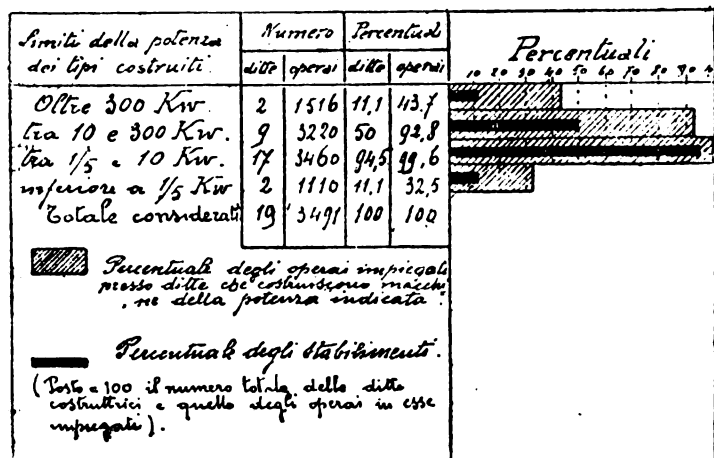 Limiti della potenza dei tipi costruiti Numero Percentuali Percentuali
ditte operai ditte operai 10 20 30 40 50 60 70 80 90
Oltre 300 Kw. 2 1516 11,1 43.7
tra 10 e 300 Kw. 9 3220 50 92,8
tra 1/5 e 10 Kw. 17 3460 94,5 99,6
inferiore a 1/5 Kw 2 1110 11,1 32,5
Totale considerati 19 3491 100 100
Percentuale degli operai impiegati
presso ditte che costruiscono macchi
ne della potenza indicata.
Percentuale degli stabilimenti.
(Posto = 100 il numero totale delle ditte
costruttrici e quello degli operai in esse
impiegati).